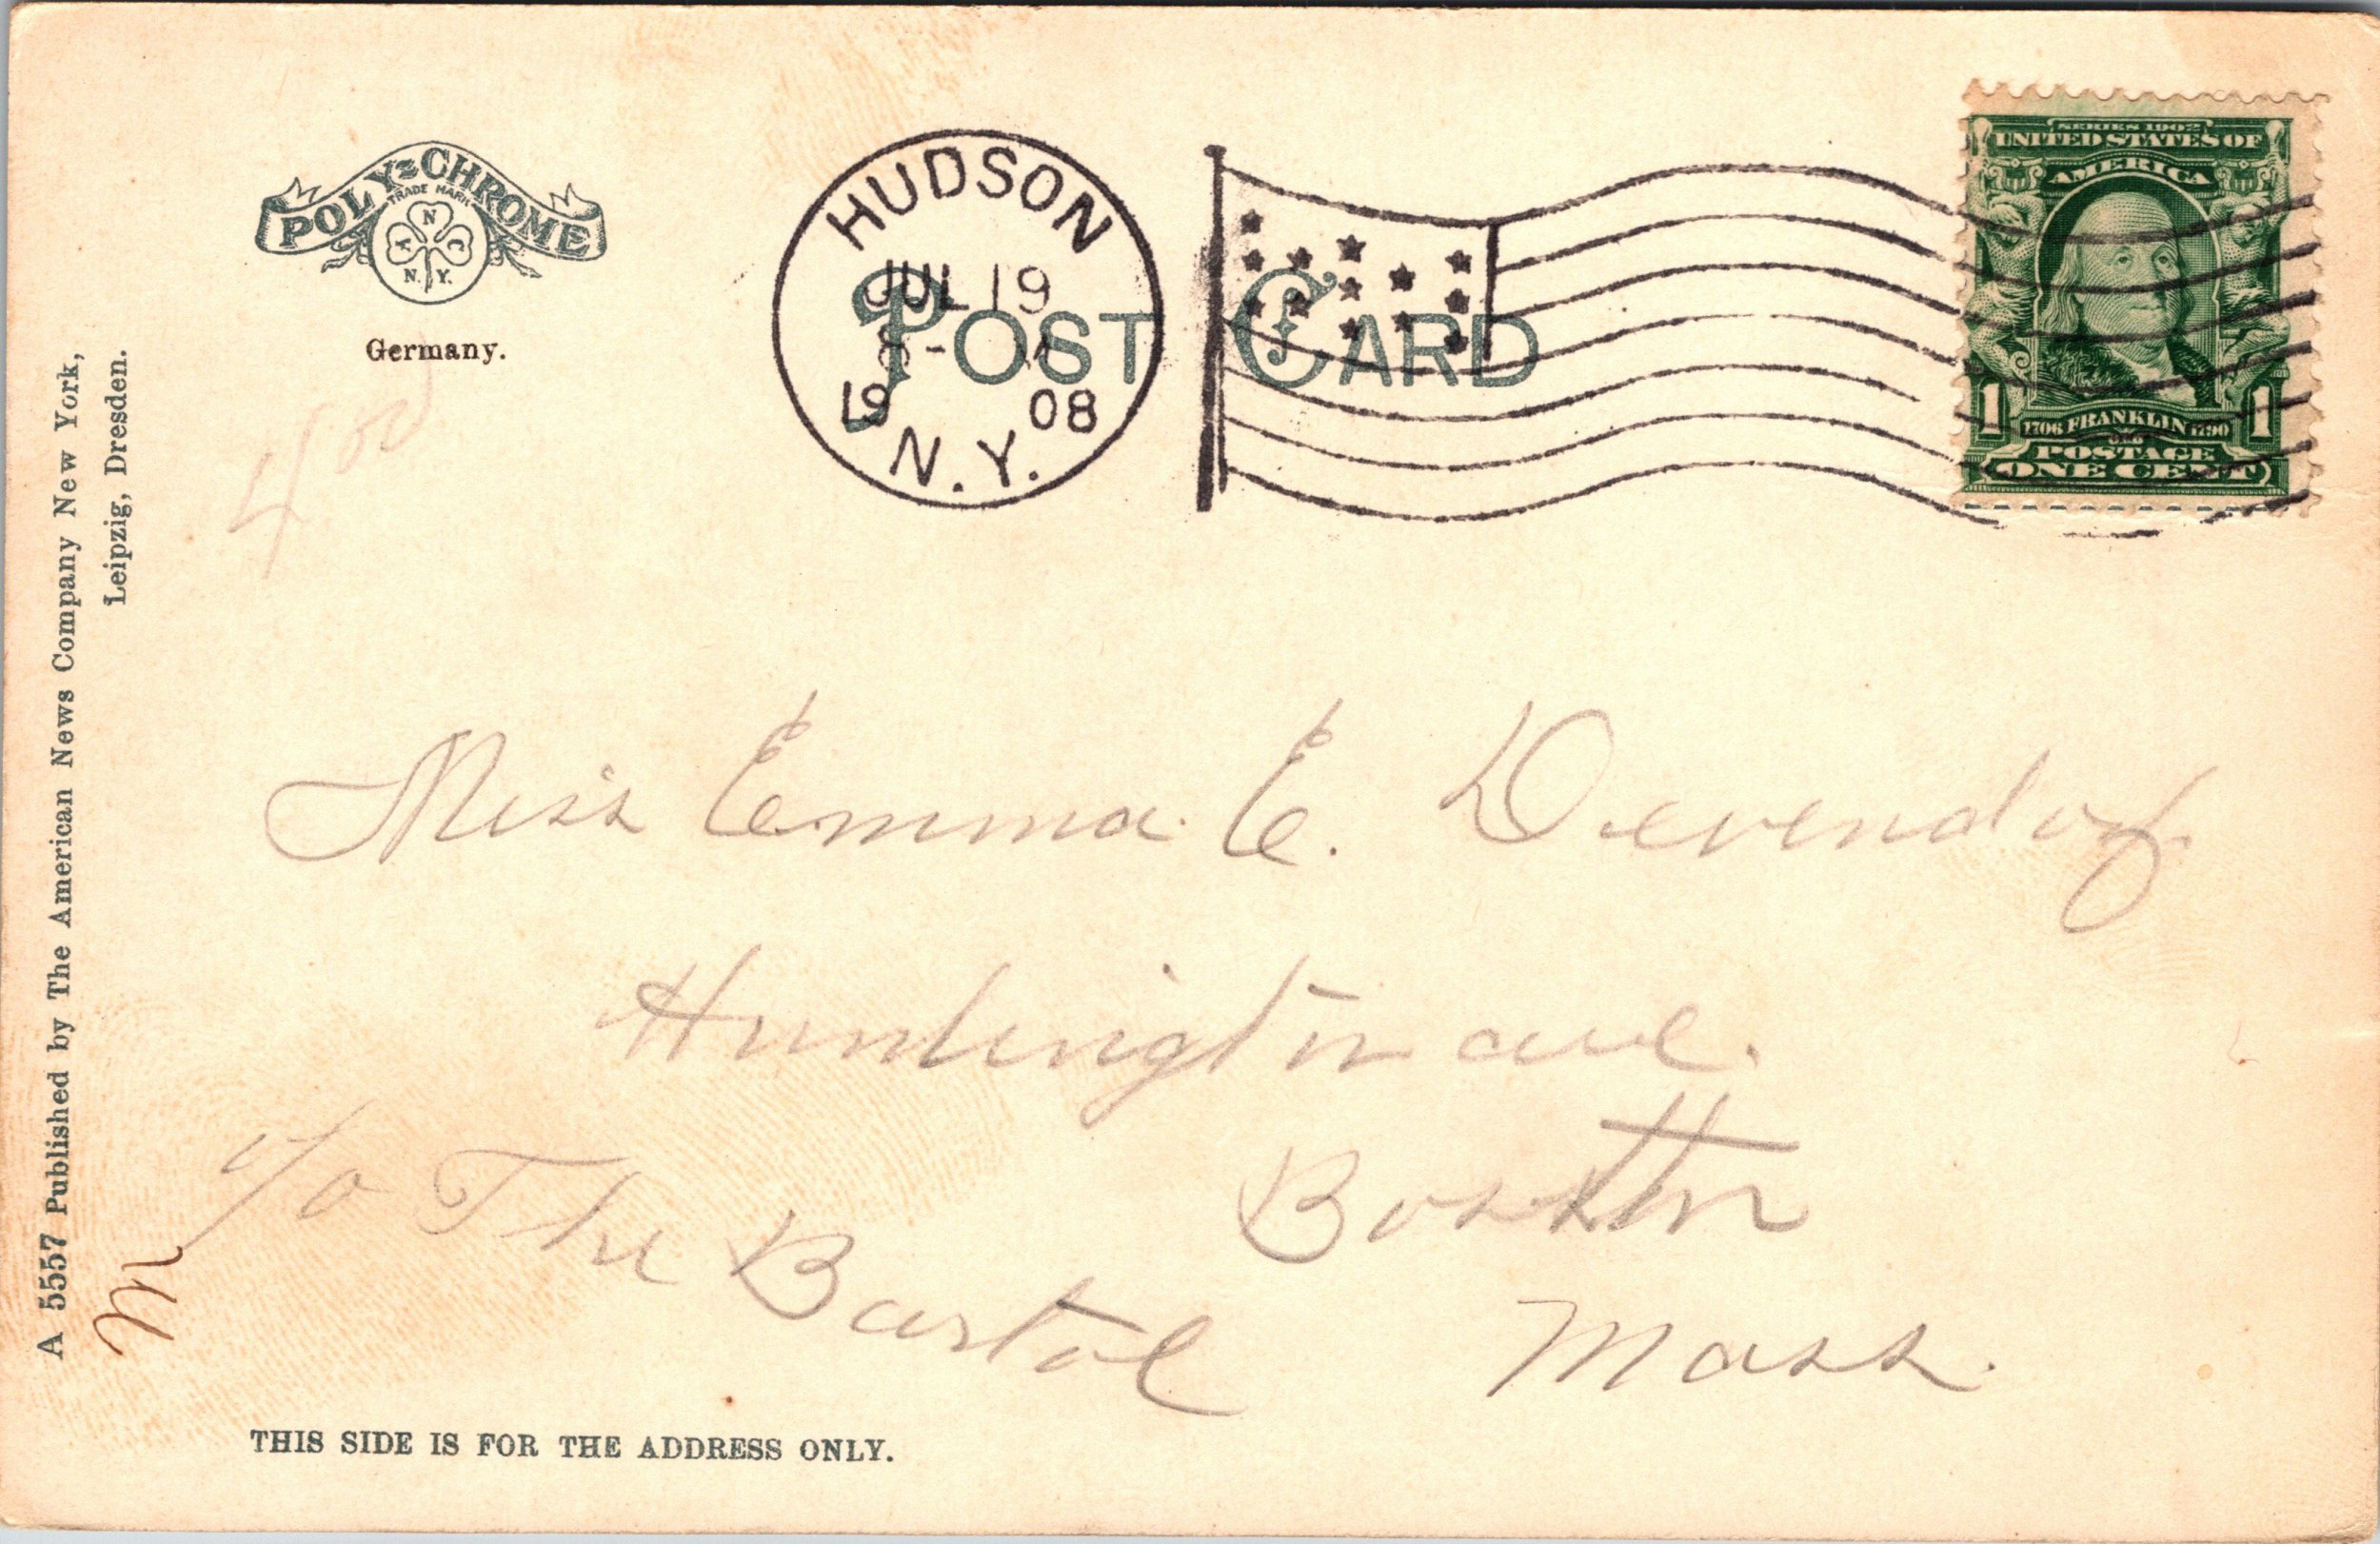 POLY-CHROME
TRADE MARK
A N C
N. Y.
Germany.
HUDSON
JUL 19
8- A
19 08
N. Y.
POST CARD
SERIES 1902
UNITED STATES OF
AMERICA
1 1706 FRANKLIN 1790 1
POSTAGE
ONE CENT
Miss Emma E. Devendorf
Huntington ave.
Boston
Mass.
c/o The Bartol
THIS SIDE IS FOR THE ADDRESS ONLY.
A 5557 Published by The American News Company New York,
Leipzig, Dresden.